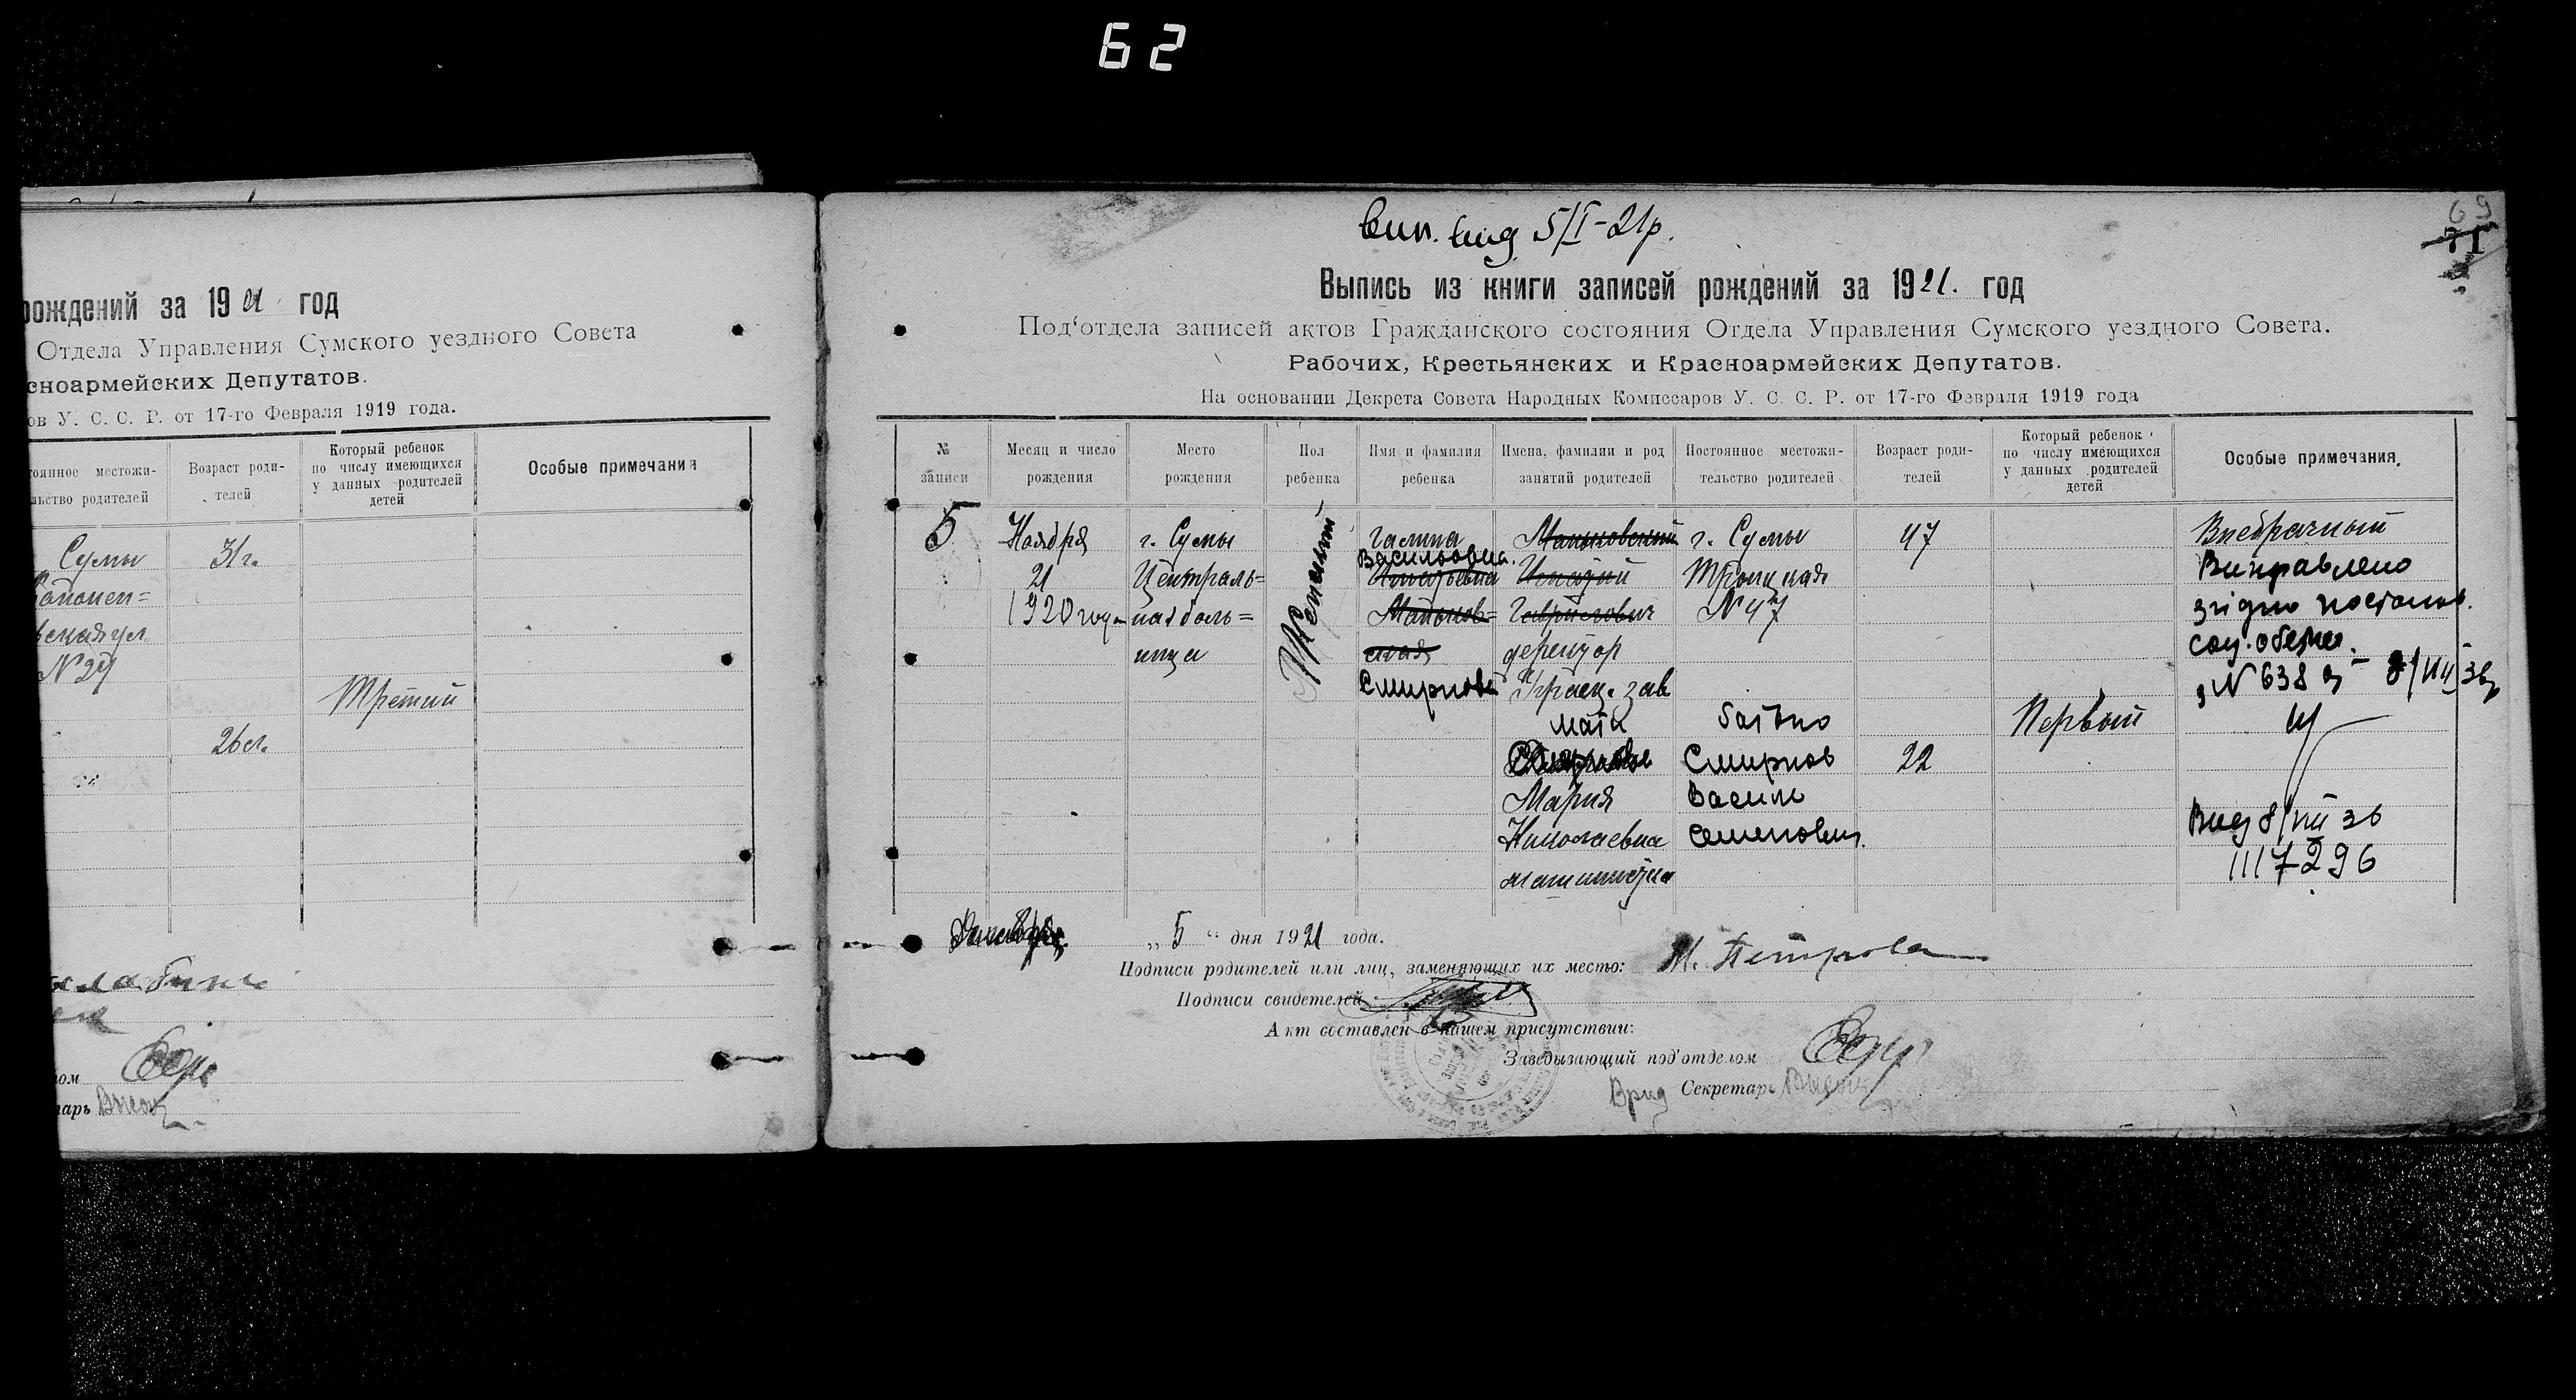 62
рождений за 1921 год
Отдела Управления Сумского уездного Совета
сноармейских Депутатов.
ов У. С. С. Р. от 17-го Февраля 1919 года.
тоянное местожи-
льство родителей
Возраст роди-
телей
Который ребенок
по числу имеющихся
у данных родителей
детей
Особые примечания
Сумы
31 г.
N 24
Третий
26 л.
ом
тарь
вип. вид. 5/I-21р.
69
71
Выпись из книги записей рождений за 1921. год
Под‘отдела записей актов Гражданского состояния Отдела Управления Сумского уездного Совета.
Рабочих, Крестьянских и Красноармейских Депутатов.
На основании Декрета Совета Народных Комиссаров У. С. С. Р. от 17-го Февраля 1919 года
№
записи
Месяц и число
рождения
Место
рождения
Пол
ребенка
Имя и фамилия
ребенка
Имена, фамилии и род
занятий родителей
Постоянное местожи-
тельство родителей
Возраст роди-
телей
Который ребенок
по числу имеющихся
у данных родителей
детей
Особые примечания
5
Ноября
21
1920 года
г. Сумы
Централь=
ная боль=
ница
Женский
Галина
Васильовна.
Игнатьевна
Маньков=
ская
Смирнова
Маньковский
Игнатий
Гаврилович
мати
Мария
Николаевна
машинистка
г. Сумы
Троицкая
N 47
батько
Смирнов
Василь
Семенович.
47
22
Первый
Внебрачный
Виправлено
згідно постанов.
соц. обезпеч.
N 638 8/VIII 36
Вид 8/VIII 36
1117296
„ 5 “ дня 1921 года.
Подписи родителей или лиц, заменяющих их место: М. Петрова
Подписи свидетелей
Акт составлен в нашем присутствии:
Заведывающий под‘отделом
Врид Секретарь